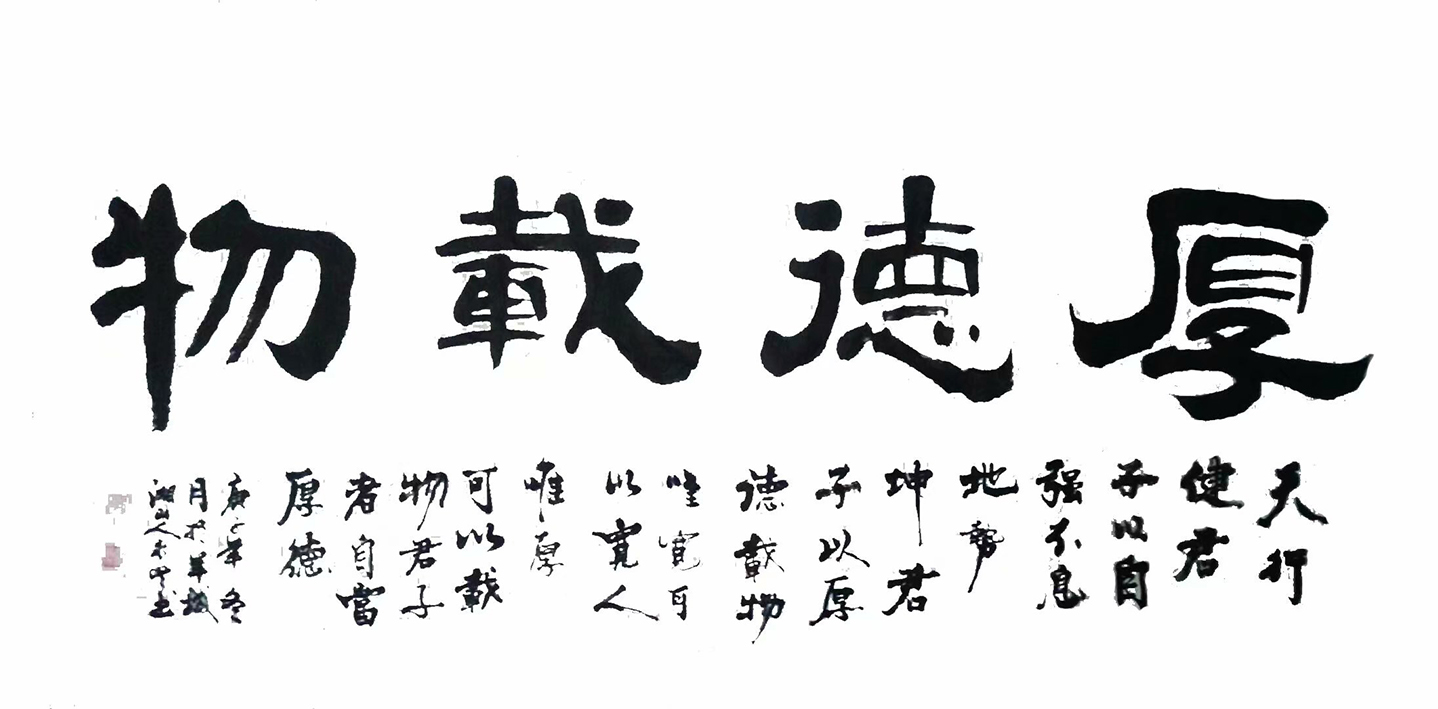 厚德載物
天行
健君
子以自
强不息
地勢
坤君
子以厚
德載物
唯寬可
以寬人
唯厚
可以載
物君子
者自當
厚德
庚子年冬
月於羊城
湖山人書